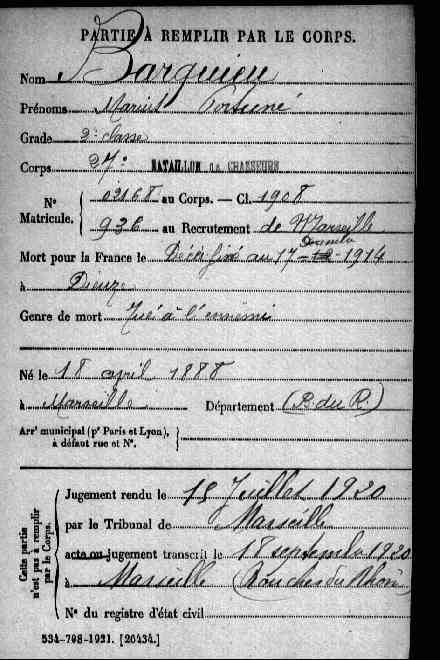 PARTIE À REMPLIR PAR LE CORPS.
Nom Barquieu
Prénoms Marius Fortuné
Grade 2e classe
Corps 27e BATAILLON DE CHASSEURS
N° Matricule. 02168 au Corps. — Cl. 1908
936 au Recrutement de Marseille
Mort pour la France le Décès fixé au 17 - 1914
à Dieuze
Genre de mort Tué à l'ennemi
Né le 18 avril 1888
à Marseille Département (B. du R.)
Arrt municipal (pr Paris et Lyon), à défaut rue et N°.
Cette partie n'est pas à remplir par le Corps.
Jugement rendu le 15 Juillet 1920
par le Tribunal de Marseille
acte ou jugement transcrit le 18 septembre 1920
à Marseille (Bouches du Rhône)
N° du registre d'état civil
534-708-1921. [26434.]